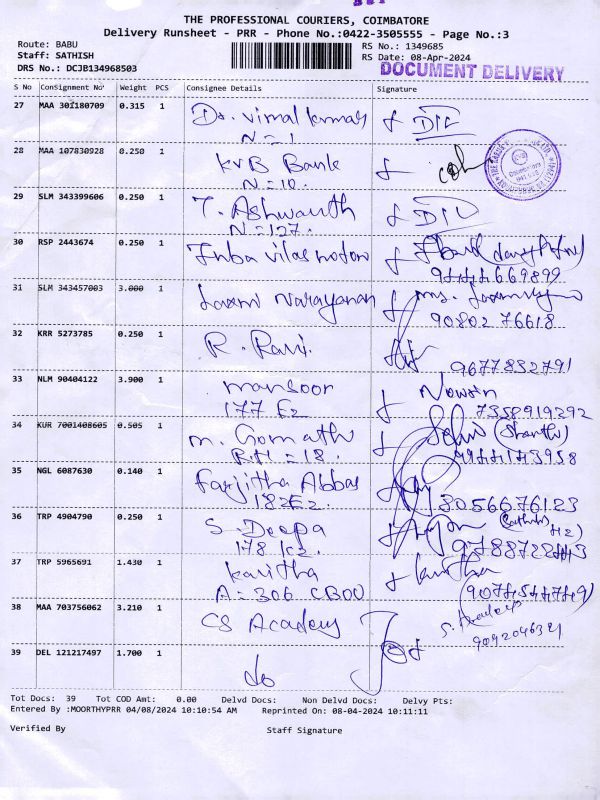 THE PROFESSIONAL COURIERS, COIMBATORE
Delivery Runsheet - PRR - Phone No.:0422-3505555 - Page No.:3
Route: BABU
RS No.: 1349685
Staff: SATHISH
RS Date: 08-Apr-2024
DRS No.: DCJB134968503
DOCUMENT DELIVERY
S No Consignment No Weight PCS Consignee Details Signature
27 MAA 302180709 0.315 1 Dr. Vimal kumar
N=1
28 MAA 107830928 0.250 1 KVB Bank
N=10.
29 SLM 343399606 0.250 1 T. Ashwanth
N=127.
30 RSP 2443674 0.250 1 Inba vilas
31 SLM 343457003 3.000 1 Laxmi Narayanan
90802 76618
32 KRR 5273785 0.250 1 R. Ravi.
9677832791
33 NLM 90404122 3.900 1 mansoor
177 E2
7358919292
34 KUR 7001408605 0.505 1 m. Gomathi
35 NGL 6087630 0.140 1 Farjitha Abbas
182E2.
80566 76123
36 TRP 4904790 0.250 1 S. Deepa
178 K2.
37 TRP 5965691 1.430 1 Kavitha
A=306
38 MAA 703756062 3.210 1 CS Academy
S. Academy
39 DEL 121217497 1.700 1 do
Tot Docs: 39 Tot COD Amt: 0.00 Delvd Docs: Non Delvd Docs: Delvy Pts:
Entered By :MOORTHYPRR 04/08/2024 10:10:54 AM Reprinted On: 08-04-2024 10:11:11
Verified By Staff Signature